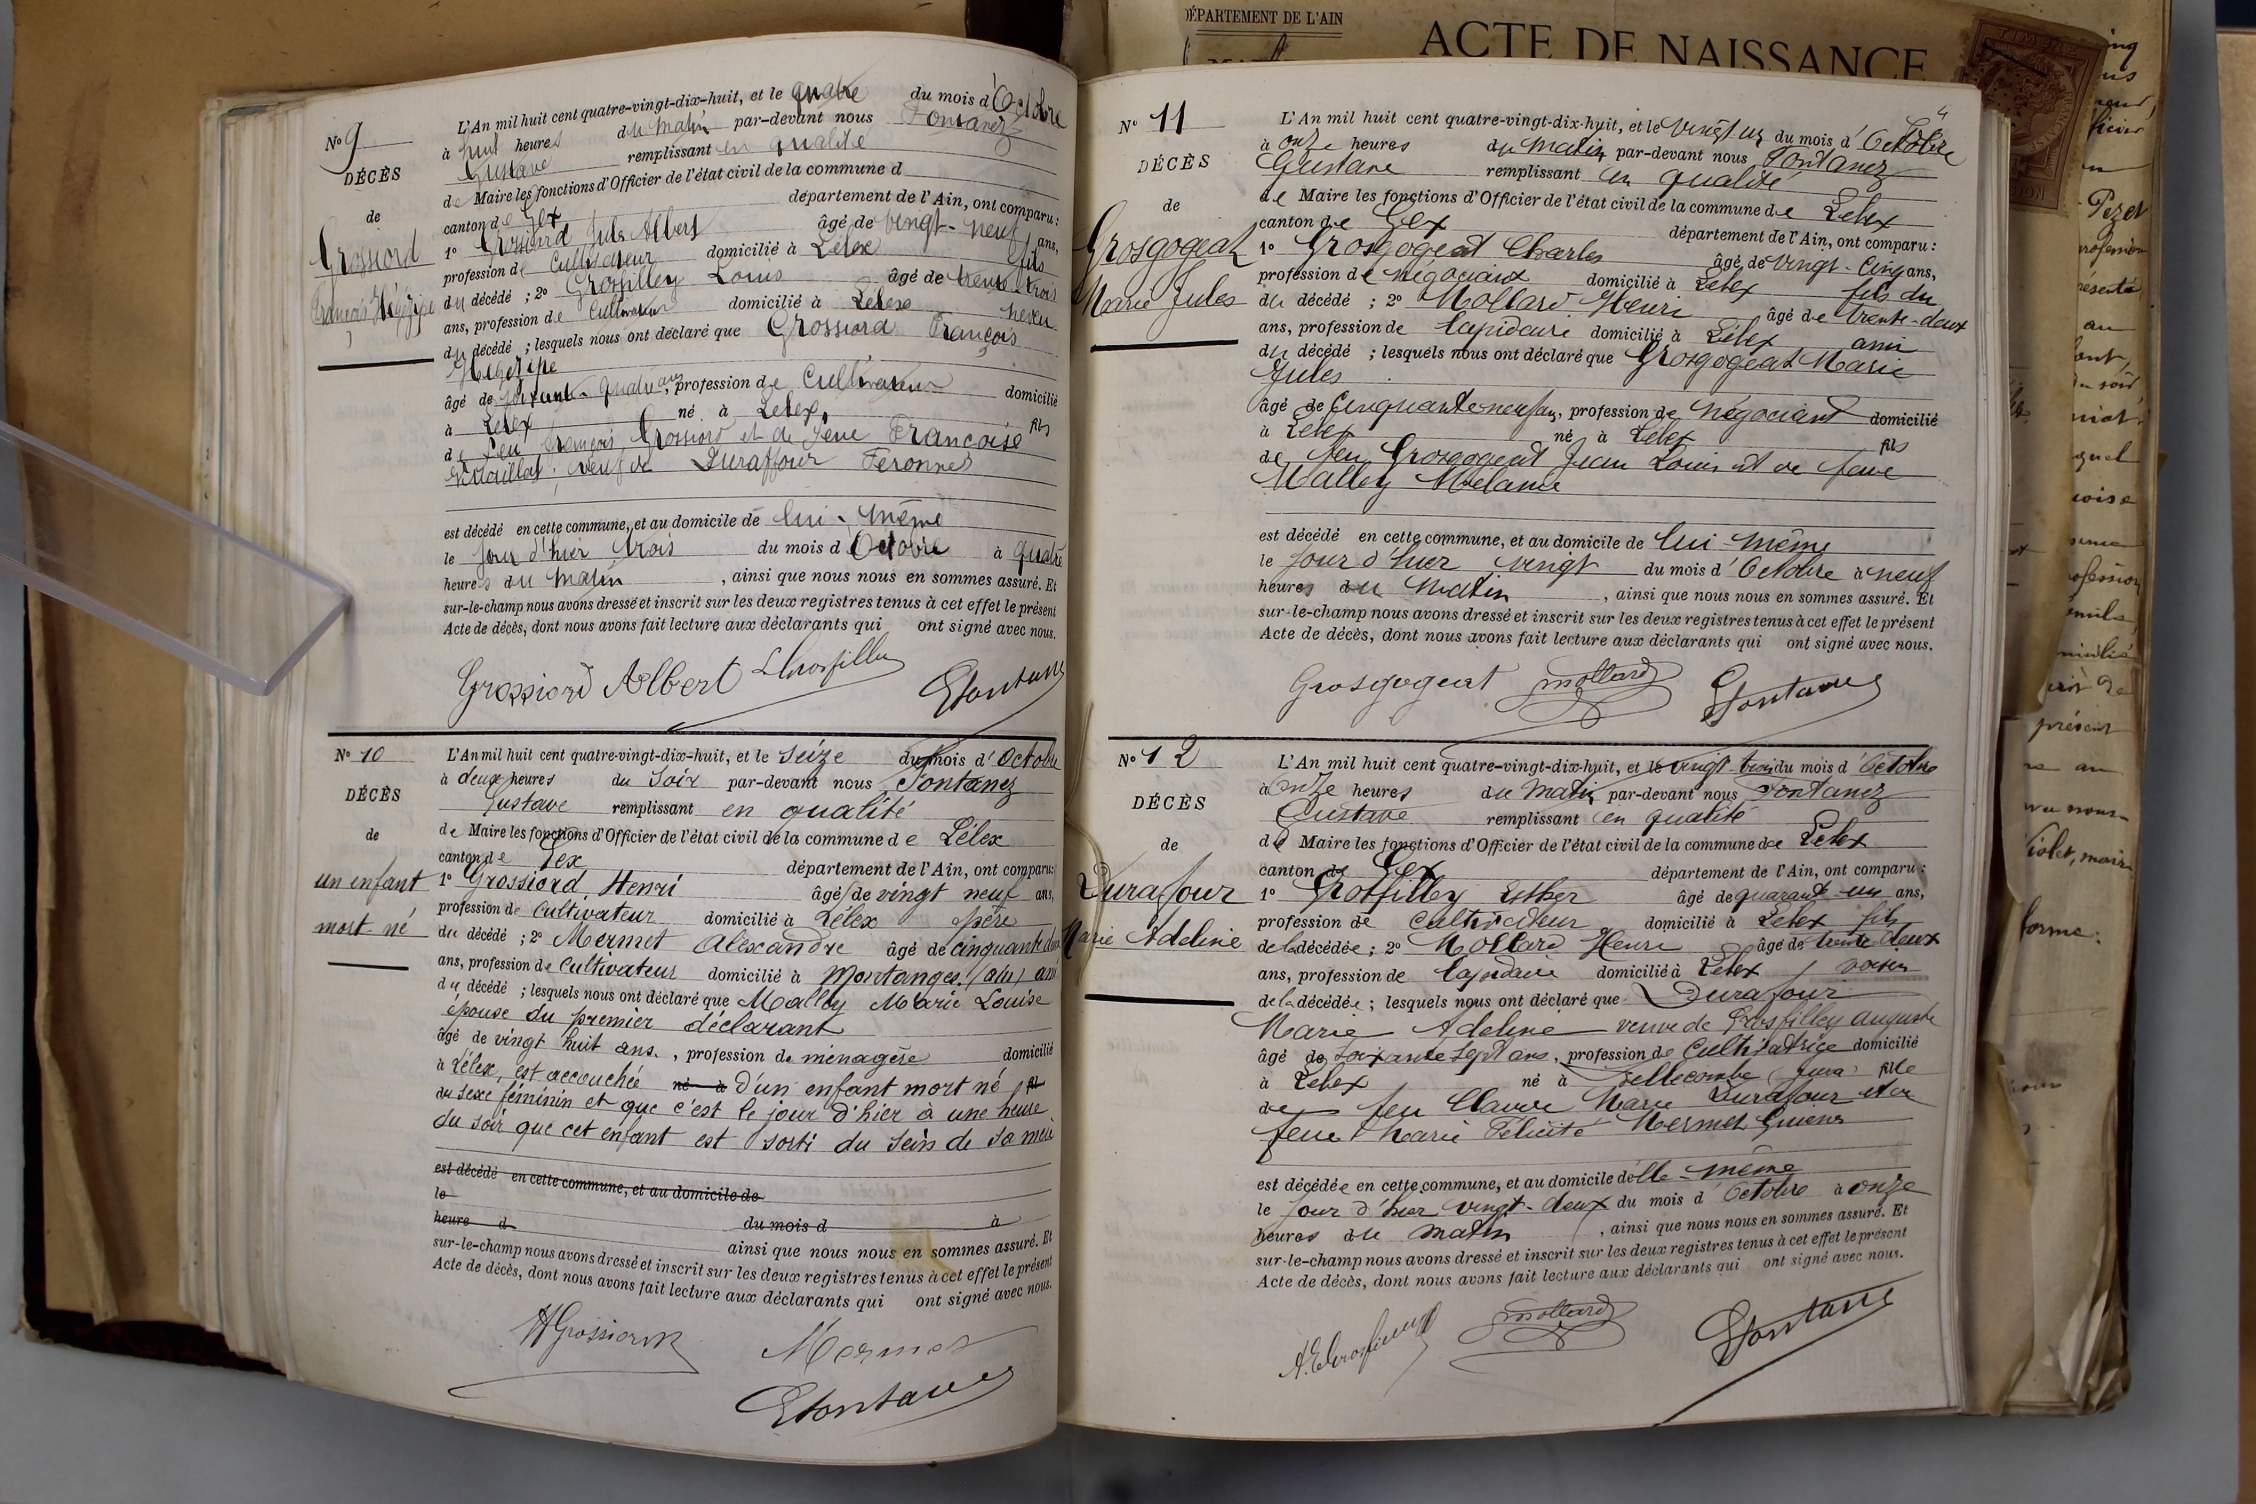 N° 9
DÉCÈS
de
Grossiord
François Hégésipe
L'An mil huit cent quatre-vingt-dix-huit, et le quatre du mois d'Octobre
à huit heures du matin par-devant nous Fontanez
Gustave remplissant en qualité
de Maire les fonctions d'Officier de l'état civil de la commune d
canton de Gex département de l'Ain, ont comparu :
1° Grossiord Jules Albert âgé de vingt-neuf ans,
profession de Cultivateur domicilié à Lélex fils
du décédé ; 2° Grosfilley Louis âgé de trente trois
ans, profession de Cultivateur domicilié à Lélex neveu
du décédé ; lesquels nous ont déclaré que Grossiord François
Hégésipe
âgé de soixante-quatre ans, profession de Cultivateur domicilié
à Lélex né à Lélex, fils
de feu François Grossiord et de feue Françoise
veuf de Duraffour
est décédé en cette commune, et au domicile de lui-même
le jour d'hier trois du mois d'Octobre à quatre
heures du matin, ainsi que nous nous en sommes assuré. Et
sur-le-champ nous avons dressé et inscrit sur les deux registres tenus à cet effet le présent
Acte de décès, dont nous avons fait lecture aux déclarants qui ont signé avec nous.
Grossiord Albert LGrosfilley GFontanez
N° 10
DÉCÈS
de
un enfant
mort-né
L'An mil huit cent quatre-vingt-dix-huit, et le seize du mois d'Octobre
à deux heures du soir par-devant nous Fontanez
Gustave remplissant en qualité
de Maire les fonctions d'Officier de l'état civil de la commune de Lélex
canton de Gex département de l'Ain, ont comparu:
1° Grossiord Henri âgé de vingt neuf ans,
profession de Cultivateur domicilié à Lélex père
du décédé ; 2° Mermet Alexandre âgé de cinquante deux
ans, profession de Cultivateur domicilié à Montanges (Ain) ami
du décédé ; lesquels nous ont déclaré que Malley Marie Louise
épouse du premier déclarant
âgé de vingt huit ans, profession de ménagère domicilié
à Lélex, est accouchée né à D'un enfant mort né fil
du sexe féminin et que c'est le jour d'hier à une heure
du soir que cet enfant est sorti du sein de sa mère
est décédé en cette commune, et au domicile de
le
heure d du mois d à
ainsi que nous nous en sommes assuré. Et
sur-le-champ nous avons dressé et inscrit sur les deux registres tenus à cet effet le présent
Acte de décès, dont nous avons fait lecture aux déclarants qui ont signé avec nous.
HGrossiord Mermet
GFontanez
DÉPARTEMENT DE L'AIN
ACTE DE NAISSANCE
N° 11
DÉCÈS
de
Grosgogeat
Marie Jules
L'An mil huit cent quatre-vingt-dix-huit, et le vingt un du mois d'Octobre
à onze heures du matin par-devant nous Fontanez
Gustave remplissant en qualité
de Maire les fonctions d'Officier de l'état civil de la commune de Lélex
canton de Gex département de l'Ain, ont comparu :
1° Grosgogeat Charles âgé de vingt-cinq ans,
profession de négociant domicilié à Lélex fils du
du décédé ; 2° Mollard Henri âgé de trente-deux
ans, profession de lapidaire domicilié à Lélex ami
du décédé ; lesquels nous ont déclaré que Grosgogeat Marie
Jules
âgé de Cinquante-neuf ans, profession de négociant domicilié
à Lélex né à Lélex fils
de feu Grosgogeat Jean Louis et de feue
Malley Mélanie
est décédé en cette commune, et au domicile de lui-même
le jour d'hier vingt du mois d'Octobre à neuf
heures du matin, ainsi que nous nous en sommes assuré. Et
sur-le-champ nous avons dressé et inscrit sur les deux registres tenus à cet effet le présent
Acte de décès, dont nous avons fait lecture aux déclarants qui ont signé avec nous.
Grosgogeat Mollard GFontanez
N° 12
DÉCÈS
de
Durafour
Marie Adeline
L'An mil huit cent quatre-vingt-dix-huit, et le vingt-trois du mois d'Octobre
à onze heures du matin par-devant nous Fontanez
Gustave remplissant en qualité
de Maire les fonctions d'Officier de l'état civil de la commune de Lélex
canton de Gex département de l'Ain, ont comparu :
1° Grosfilley Esther âgé de quarante-un ans,
profession de cultivateur domicilié à Lélex fils
de la décédée ; 2° Mollard Henri âgé de trente deux
ans, profession de lapidaire domicilié à Lélex voisin
de la décédée ; lesquels nous ont déclaré que Durafour
Marie Adeline veuve de Grosfilley Auguste
âgé de soixante sept ans, profession de Cultivatrice domicilié
à Lélex né à Bellecombe (Jura) fille
de feu Claude Marie Durafour et de
feue Marie Félicité Mermet Guiena
est décédée en cette commune, et au domicile d'elle-même
le jour d'hier vingt-deux du mois d'Octobre à onze
heures du matin, ainsi que nous nous en sommes assuré. Et
sur-le-champ nous avons dressé et inscrit sur les deux registres tenus à cet effet le présent
Acte de décès, dont nous avons fait lecture aux déclarants qui ont signé avec nous.
A.EGrosfilley Mollard GFontanez